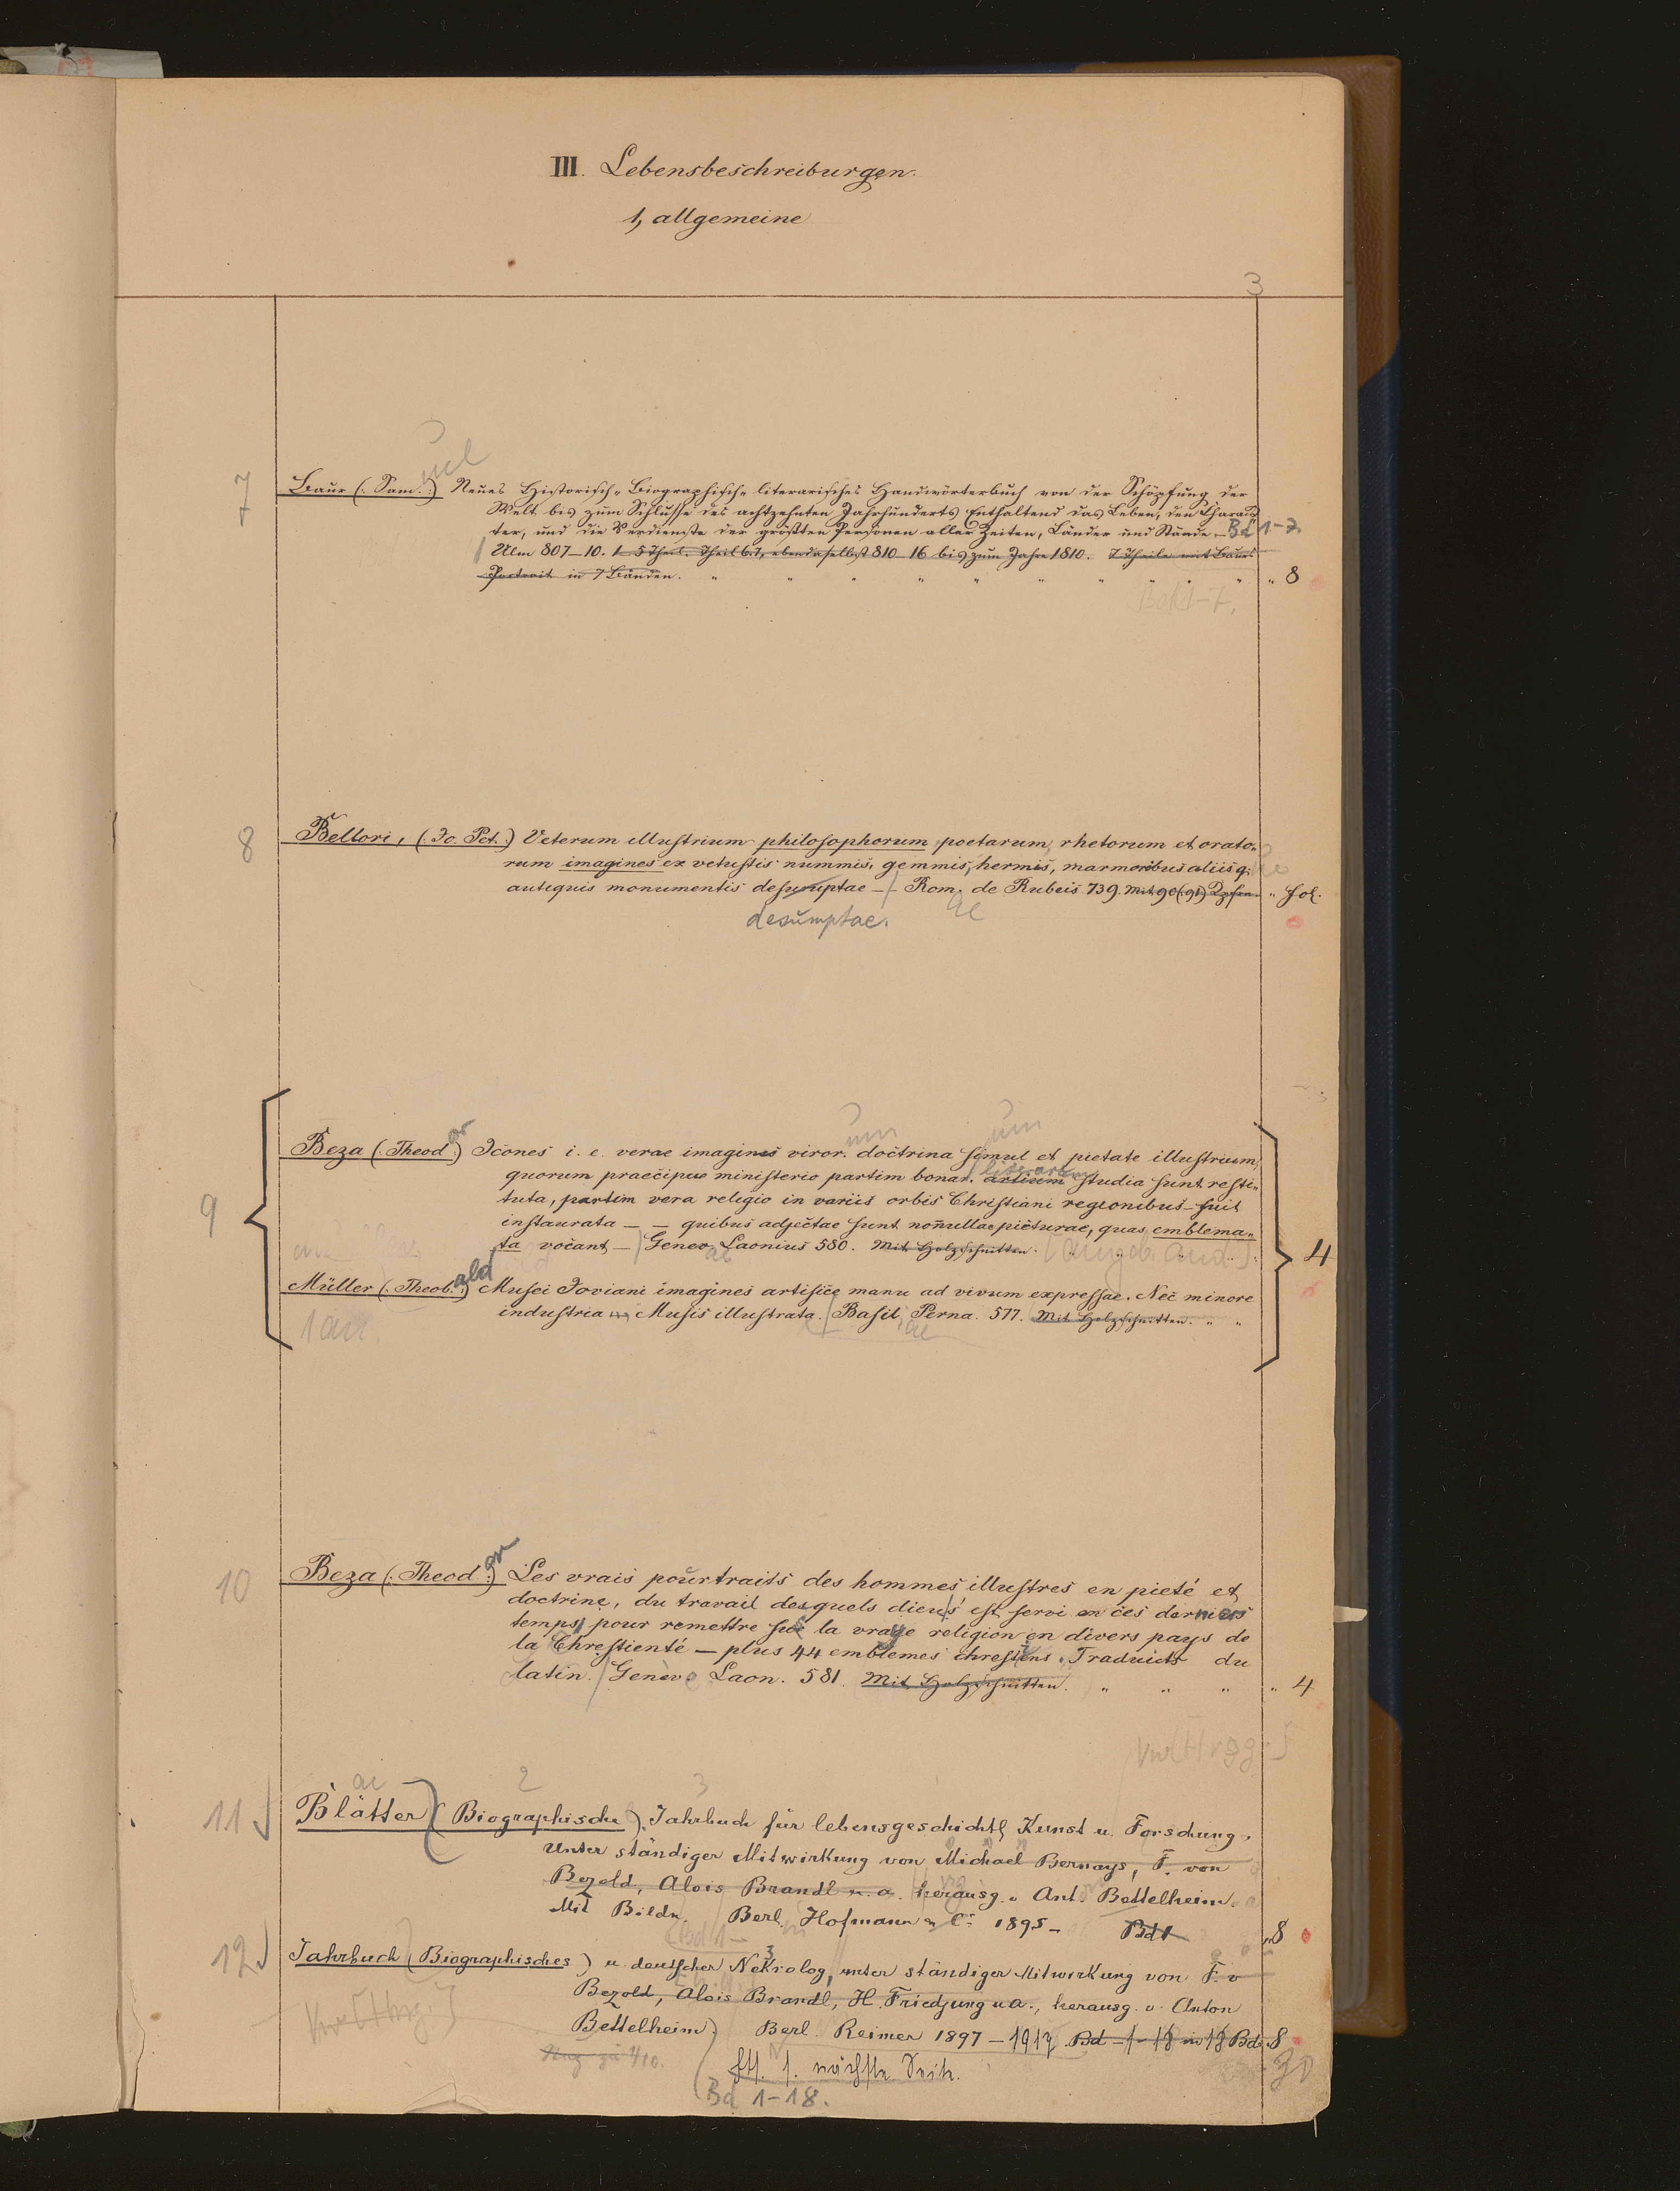 III. Lebensbeschreibungen.
1, allgemeine
3
7 Baur (: Sam. :) uel Neues Historisch-Biographisch-literarisches Handwörterbuch von der Schöpfung der
Welt bis zum Schlusse des achtzehnten Jahrhunderts Enthaltend das Leben, den Charak
ter, und die Verdienste der größten Personen aller Zeiten, Länder und Stände - Bd 1-7
Ulm 807-10. 1-5 Theil. Theil 6.7, ebendaselbst 810-16 bis zum Jahre 1810. 7 Theile mit Baurs
Portrait in 7 Bänden. " 8
Bd 1-7.
8 Bellori, (: Jo. Pet. :) Veterum illustrium philosophorum poetarum, rhetorum et orato-
rum imagines ex vetustis nummis, gemmis, hermis, marmoribus aliisq;
antiquis monumentis desumptae - Rom. de Rubeis 739. Mit 90 (91) " Fol.
desumptae. ae
um um
9 Beza (: Theod :) or Icones i. e. verae imagines viror. doctrina simul et pietate illustrium,
quorum praecipue ministerio partim bonar. artium literarum studia sunt resti-
tuta, partim vera religio in variis orbis Christiani regionibus fuit
instaurata - - quibus adjectae sunt nonullae picturae, quas emblema-
ta vocant - Genev. Laonius 580. Mit Holzschnitten. 4
Müller (: Theob. :) ald Musei Joviani imagines artifice manu ad vivum expressae. Nec minore
industria Musis illustrata. Basil, Perna. 577. Mit Holzschnitten. " "
ae
10 Beza (: Theod :) or Les vrais pourtraits des hommes illustres en pieté et
doctrine, du travail desquels dieu s' est servi en ces derniers
temps, pour remettre sus la vraye religion en divers pays de
la Chrestienté - plus 44 emblemes chrestiens. Traduicts du
latin. Genève Laon. 581. Mit Holzschnitten. " " " " 4
ae 2 3
11 Blätter (Biographische). Jahrbuch für lebensgeschichtl Kunst u. Forschung,
Unter ständiger Mitwirkung von Michael Bernays, F. von
Bezold, Alois Brandl u. a. herausg. v Ant. Bettelheim.
Mit Bildn. Berl. Hofmann & Co 1895- Bd 1 " 8
Bd 1-
12 Jahrbuch (Biographisches) u. deutscher Nekrolog, unter ständiger Mitwirkung von F. v
Bezold, Alois Brandl, H. Friedjung u a., herausg. v. Anton
Bettelheim) Berl. Reimer 1897-1917. Bd 1-18 in 18 Bd. 8
s. nächste Seite.
Bd 1-18.